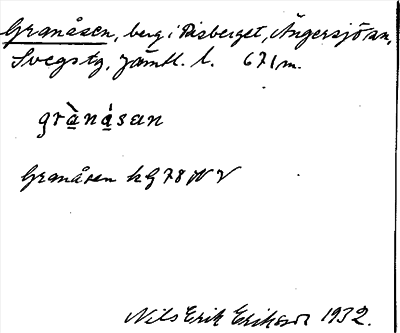 Granåsen, berg i Risberget, Ängersjö sn,
Svegs tg, Jämtl. l. 671 m.
grànåsan
Granåsen kG 78 NV
Nils Erik Eriksson 1932.